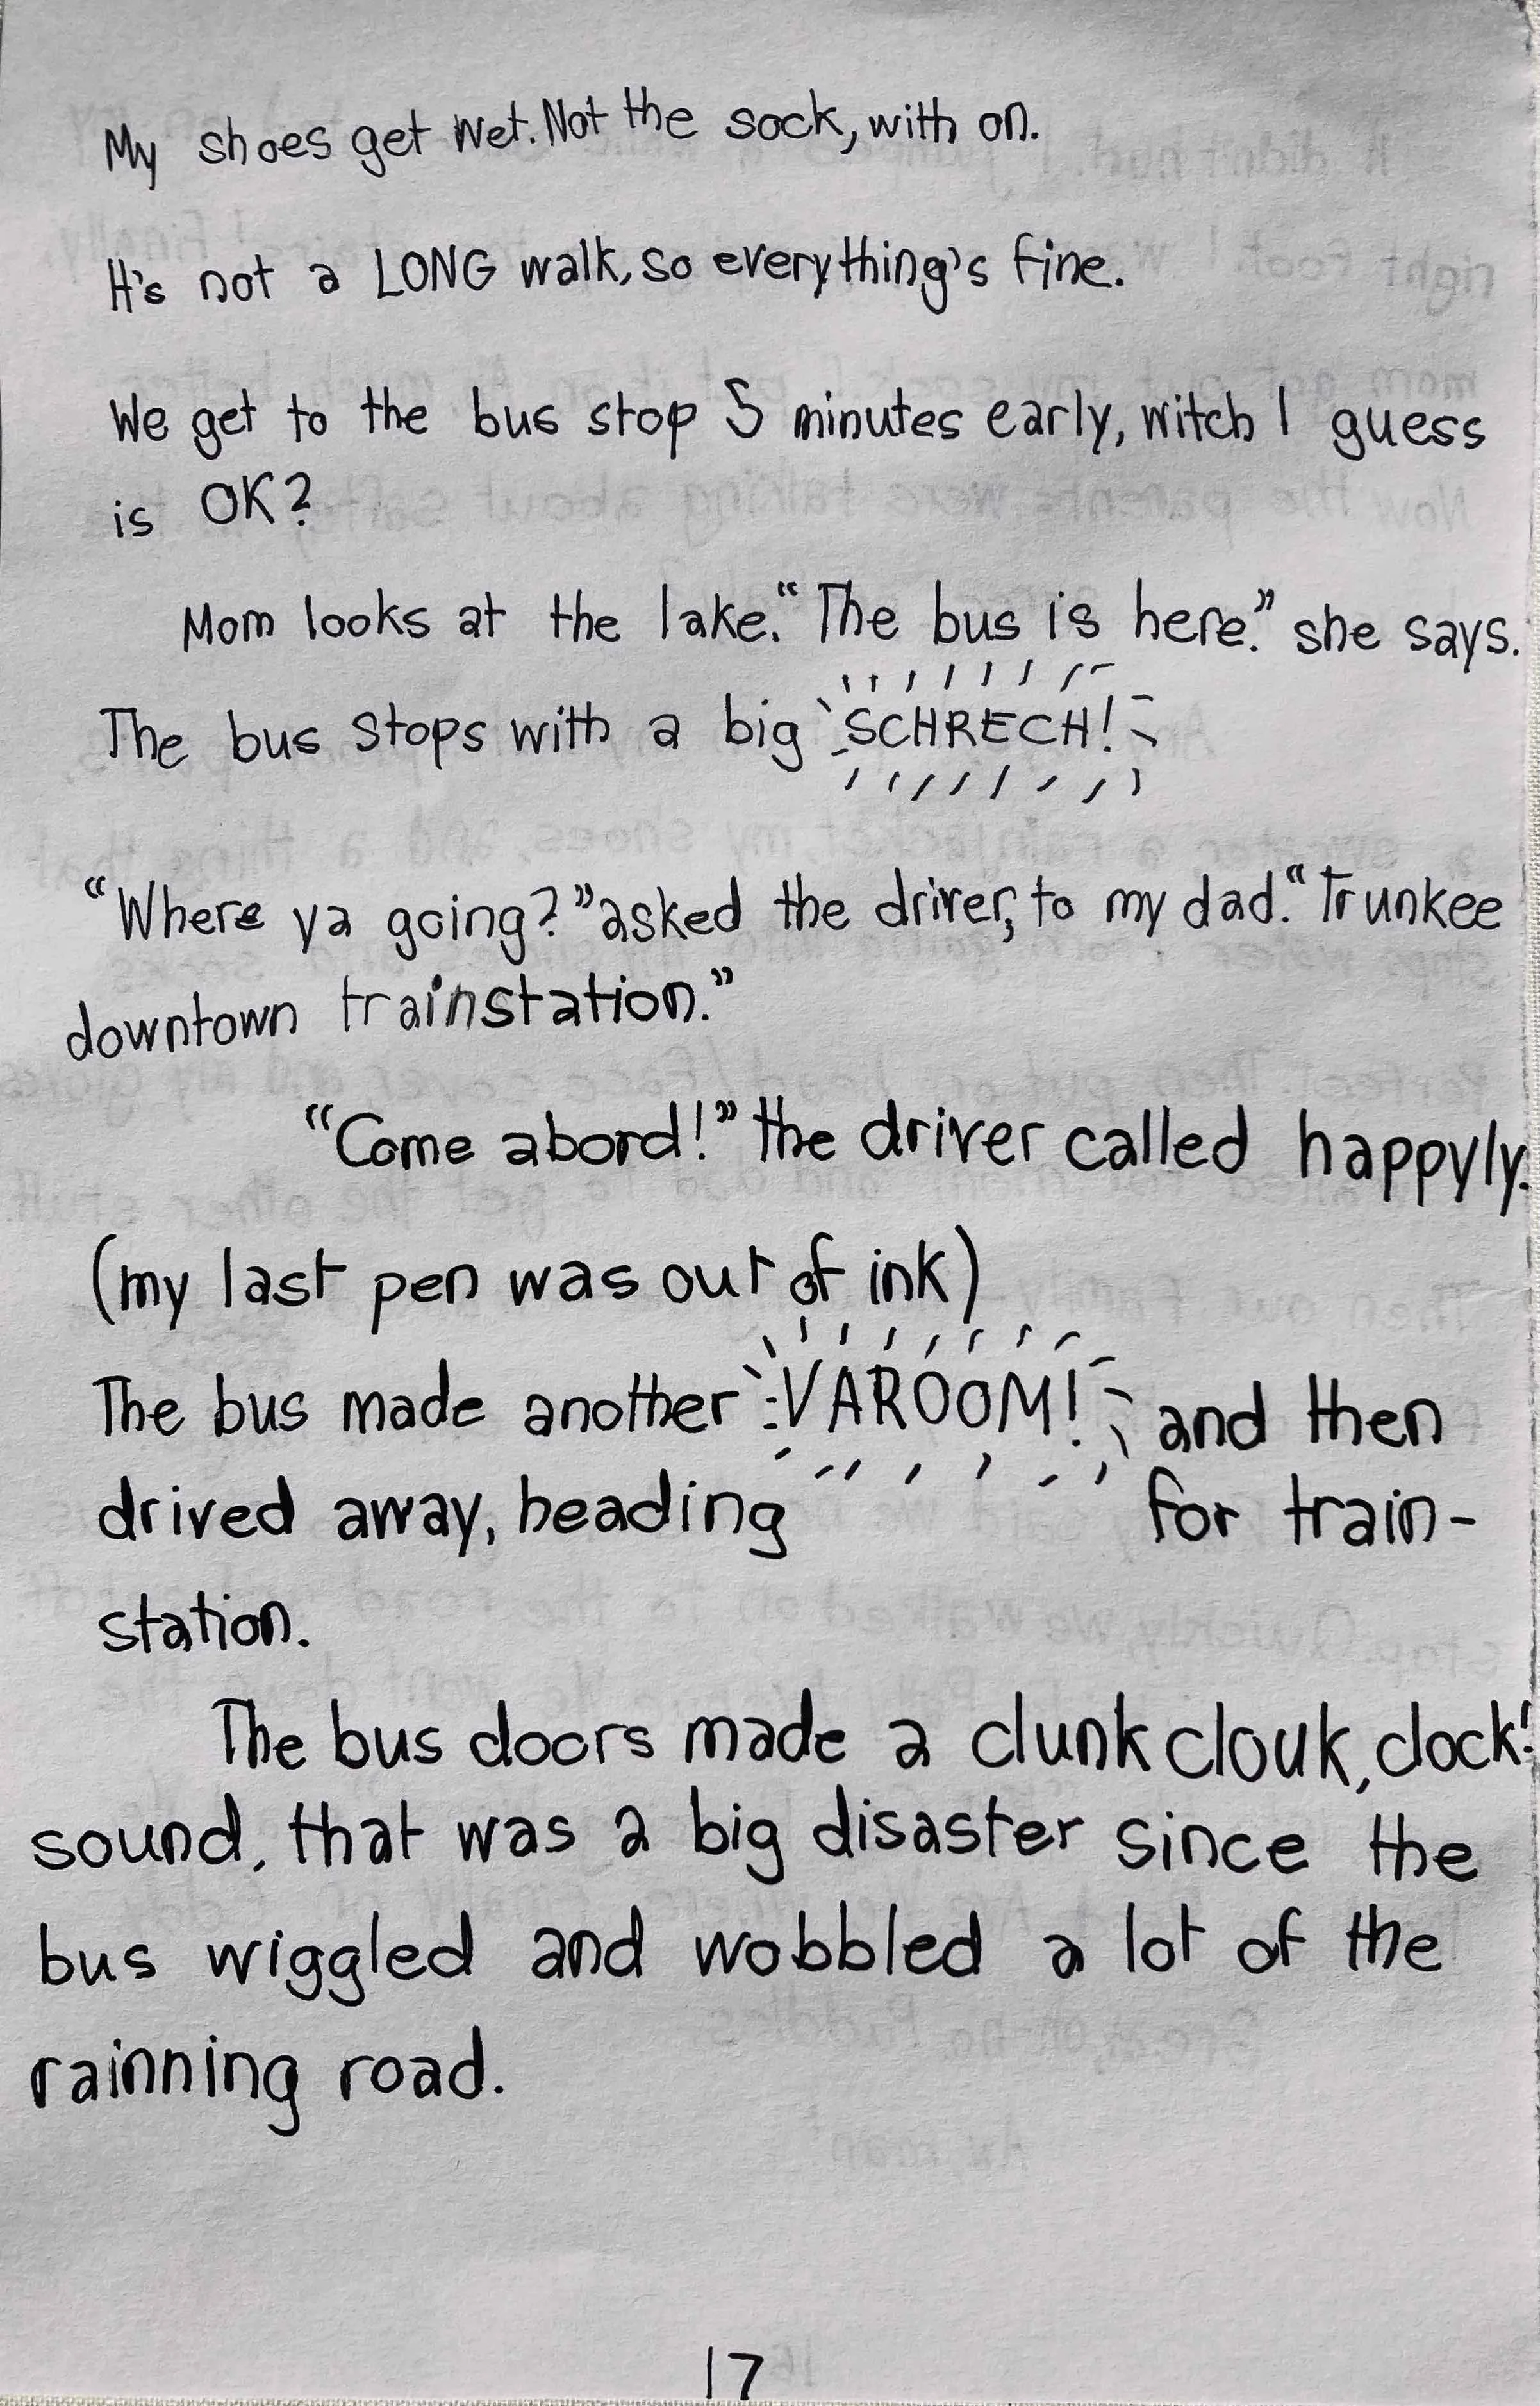 My shoes get wet. Not the sock, with on.
It's not a LONG walk, so everything's fine.
We get to the bus stop 5 minutes early, witch I guess
is OK?
Mom looks at the lake. "The bus is here." she says.
The bus stops with a big SCHRECH!
"Where ya going?" asked the driver, to my dad. "Trunkee
downtown trainstation."
"Come abord!" the driver called happyly.
(my last pen was out of ink)
The bus made another VAROOM! and then
drived away, heading for train-
station.
The bus doors made a clunk clouk, clock!
sound, that was a big disaster since the
bus wiggled and wobbled a lot of the
rainning road.
17